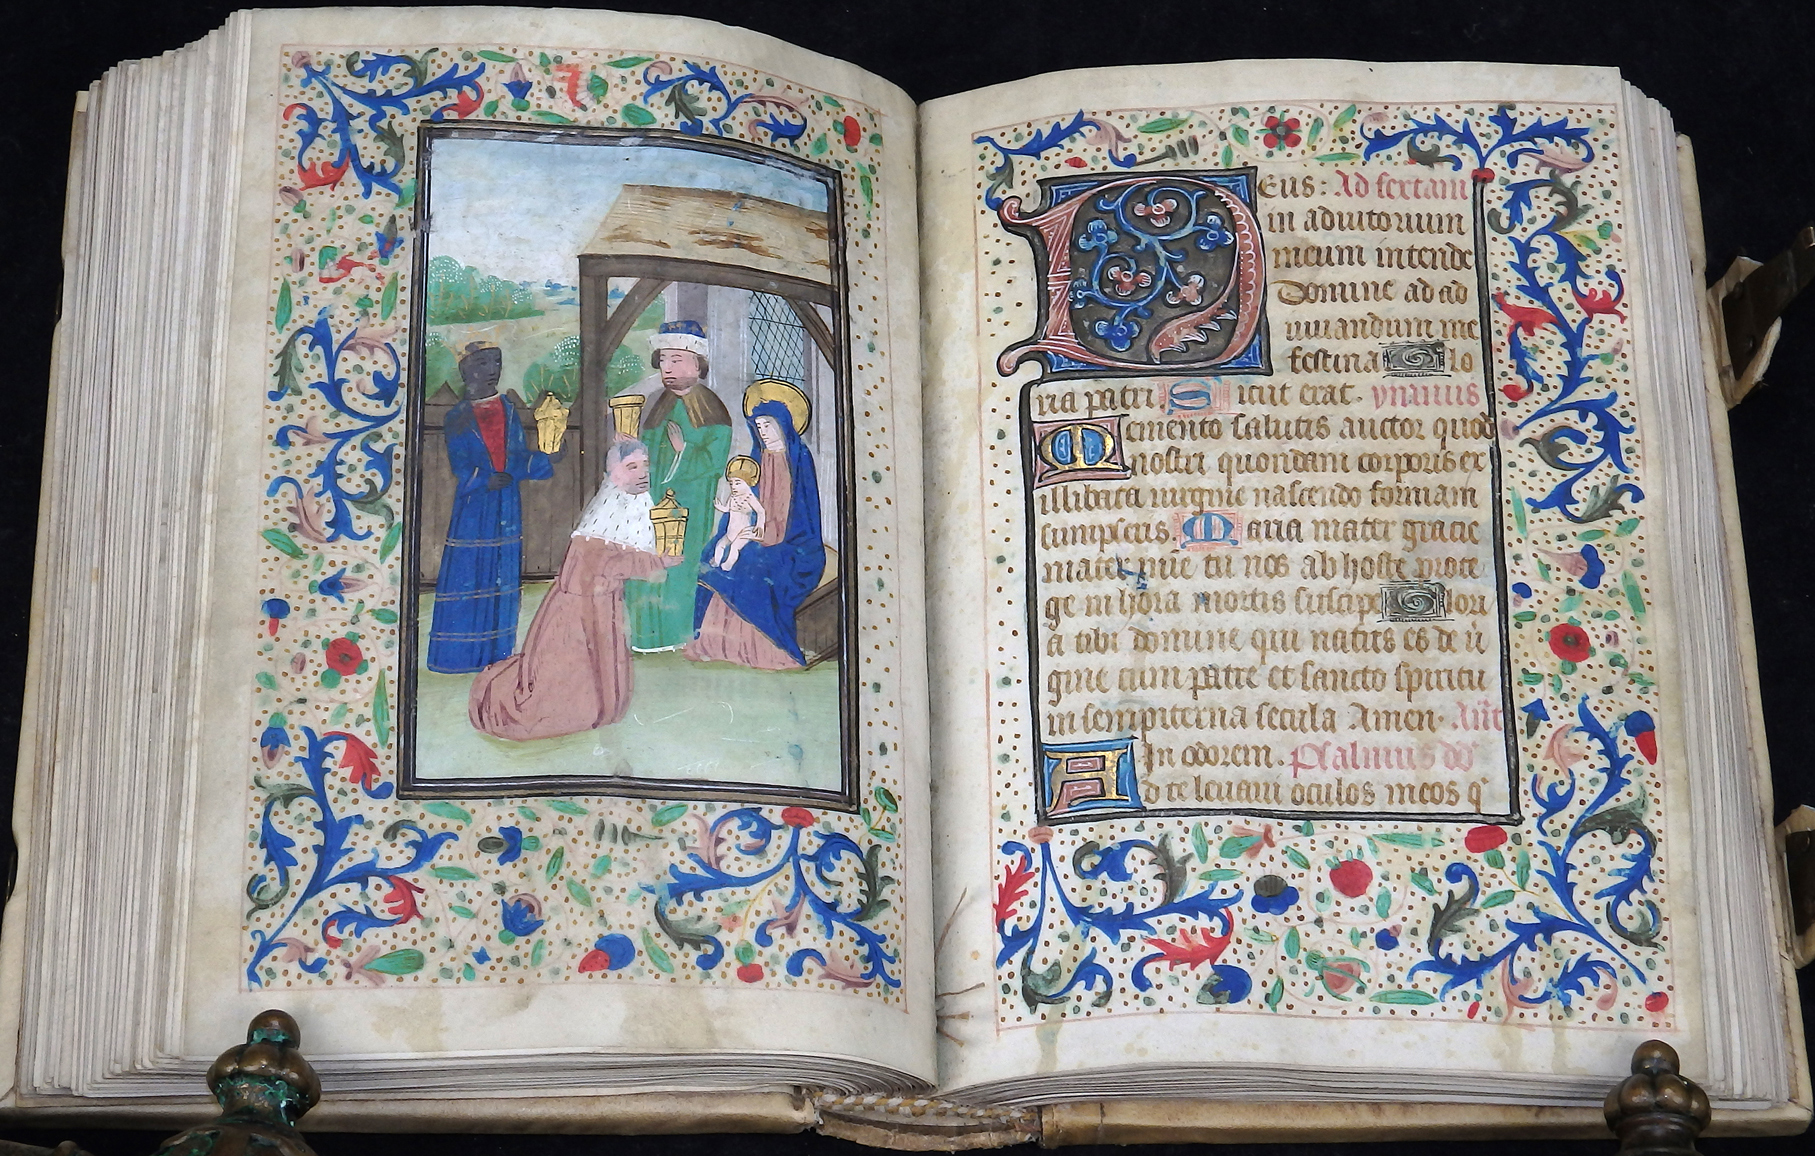 Deus: Ad sextam
in adiutorium
meum intende
Domine ad ad
iuuandum me
festina Glo
ria patri Sicut erat. ymnus
Memento salutis auctor quod
nostri quondam corporis ex
illibata uirgine nascendo formam
sumpseris. Maria mater gracie
mater mie tu nos ab hoste prote
ge in hora mortis suscipe Glori
a tibi domine qui natus es de ū
gine cum patre et sancto spiritu
in sempiterna secula Amen. Añt
In odorem. Psalmus dd
Ad te leuaui oculos meos q̄